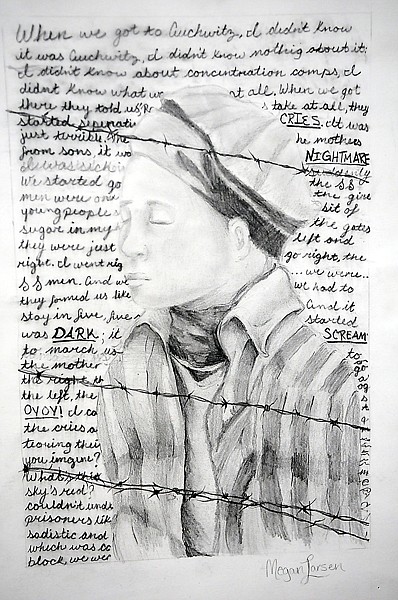 When we got to Auchwitz, I didn't know
it was Auchwitz, I didn't know nothig about it.
I didn't know about concentration comps, I
didnt know what w at all. When we got
there they told us, R s take at all, they
started seperati CRIES. It was
just terrible. The he mothers
from sons, it wa NIGHTMARE
We started go the SS
men were an the give
young people s sit of
sugar in my the gates
they were just left and
right. I went rig go right, the
SS men. And we ... we were..
they formed us like we had to
stay in five, five And it
was DARK; it started
to march us SCREAM
the mother to
the right th go
the left, the
OYOY! I ca
the cries a
tearing their
you imagine?
What's this
sky's red?
couldn't unds
prisoners lik
sadistic and
which was co
block, we wer
Megan Larsen